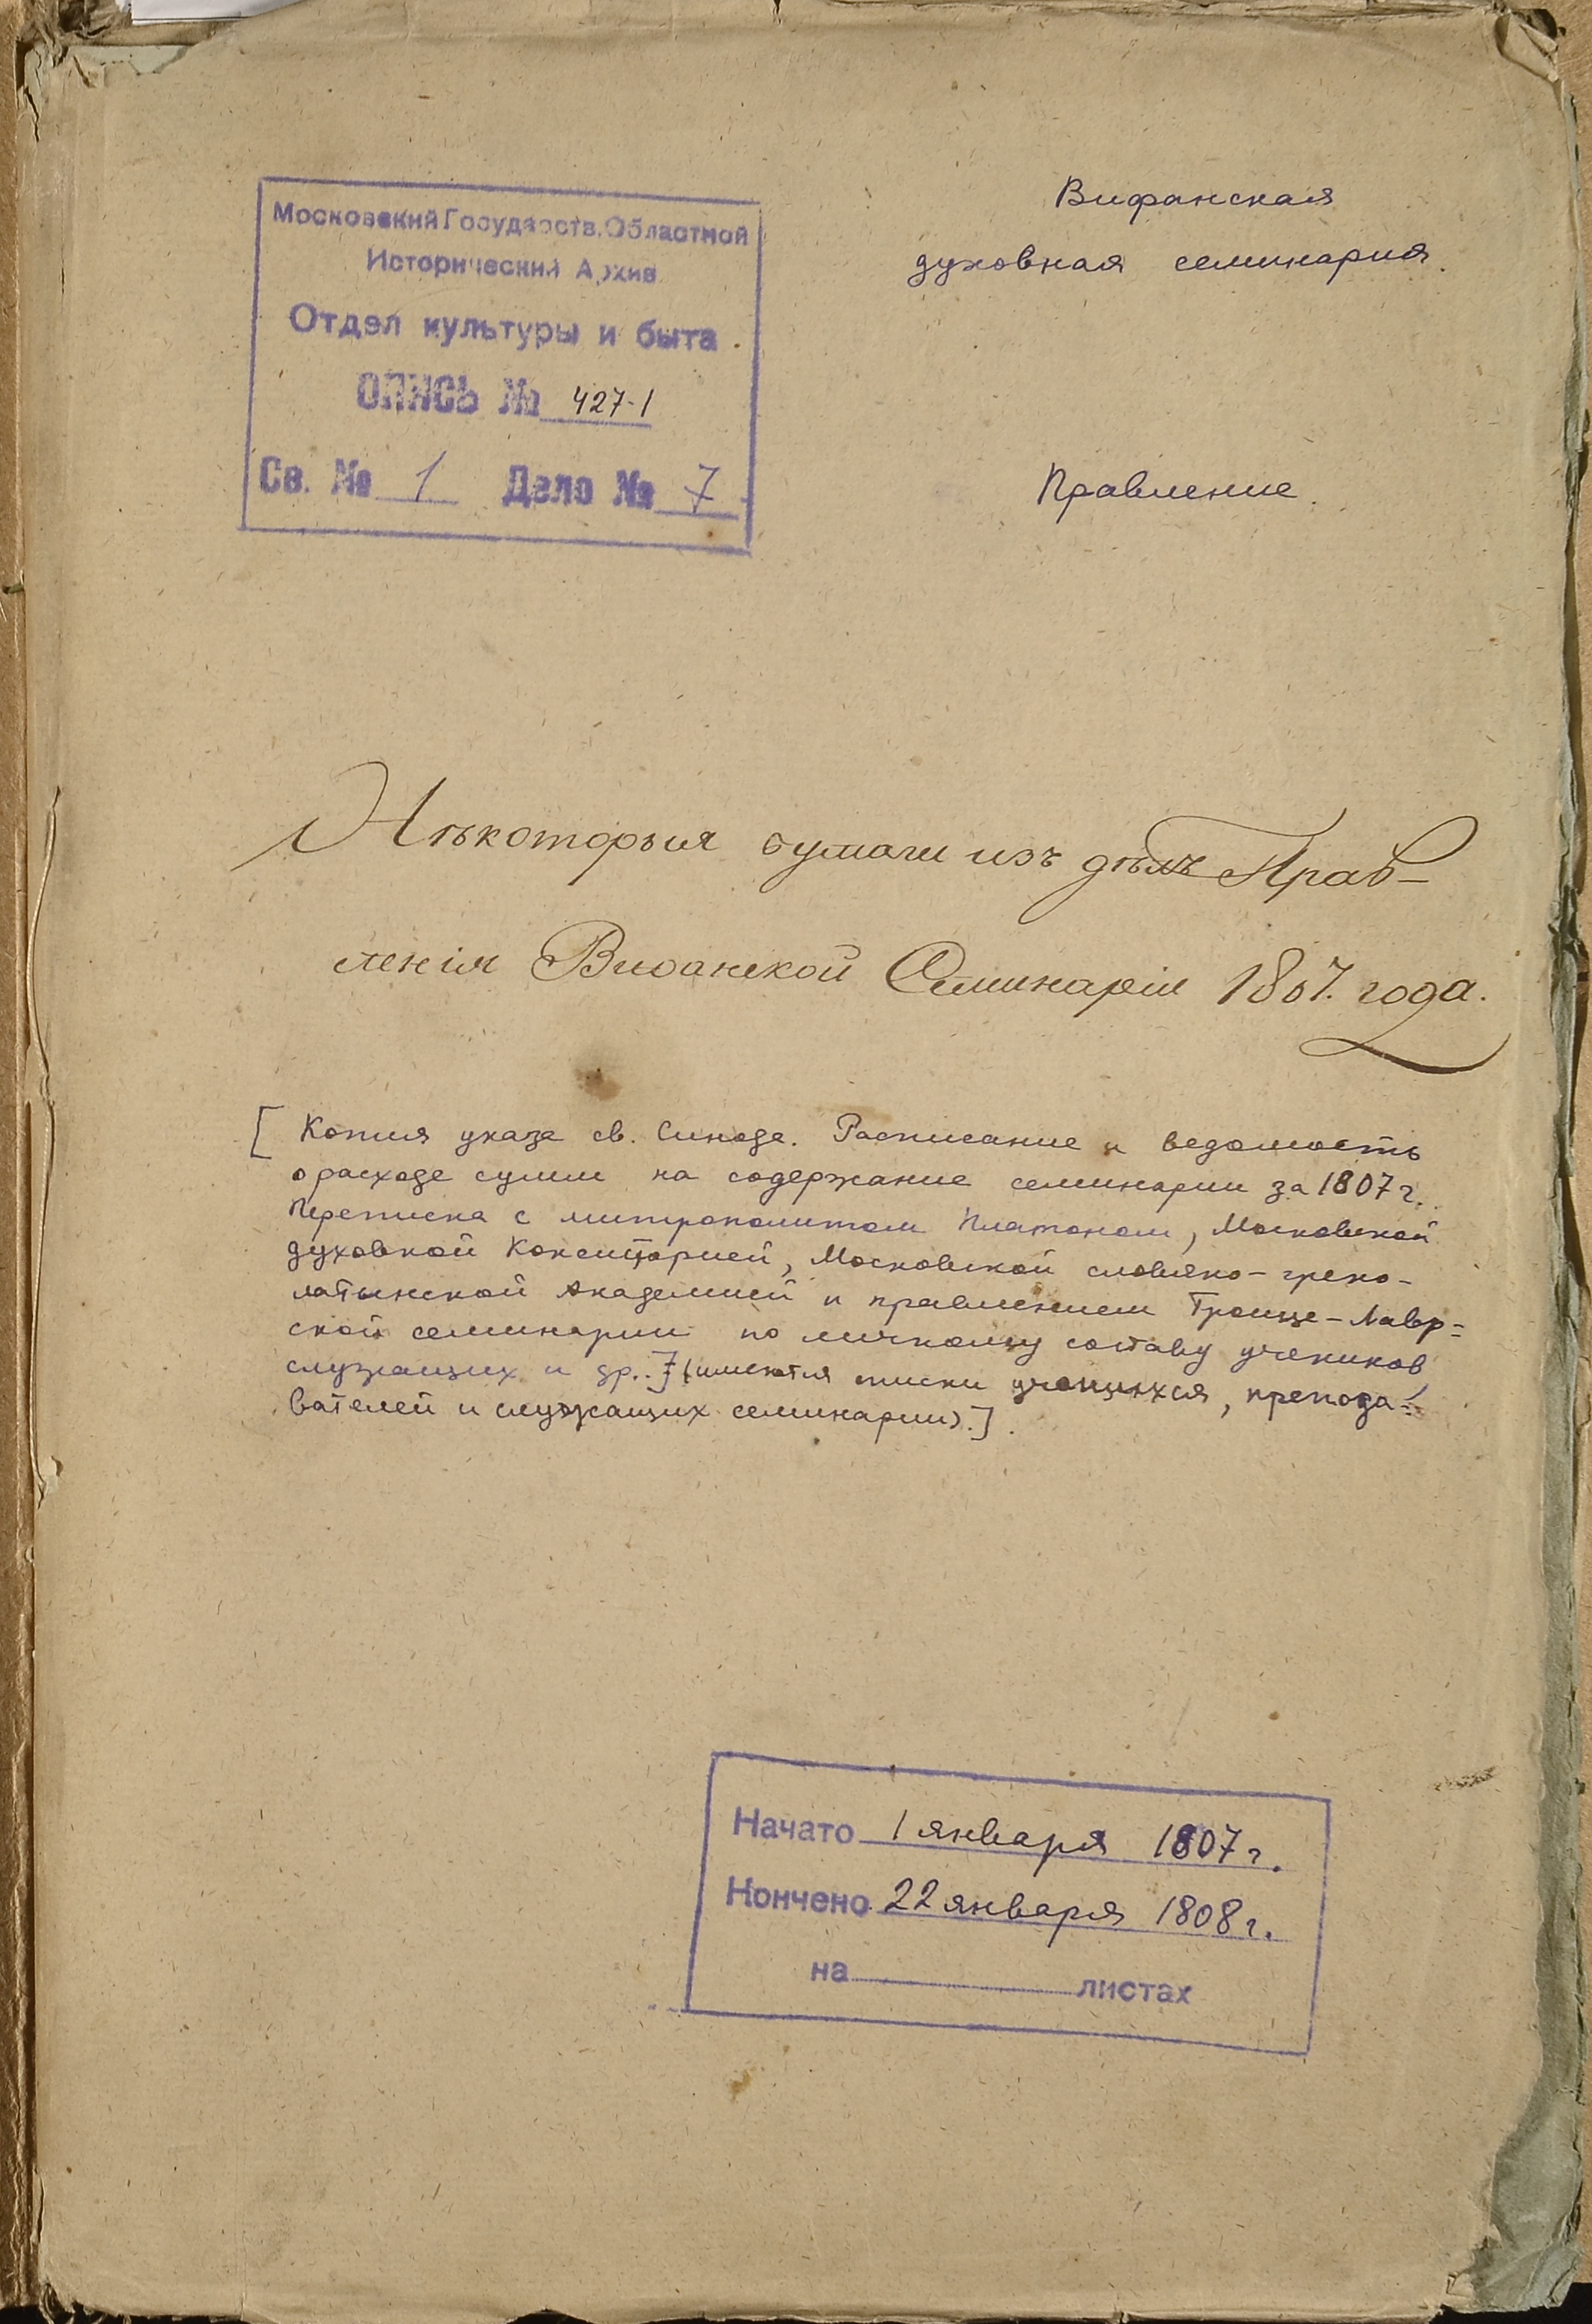 Московский Государств. Областной
Исторический Архив
Отдел культуры и быта.
ОПИСЬ № 427-1
Св. № 1 Дело № 7
Вифанская
духовная семинария.
Правление.
Нѣкоторыя бумаги изъ дѣлъ Прав-
ленія Виѳанской Семинаріи 1807. года.
[ Копия указа св. Синода. Расписание и ведомость
о расходе сумм на содержание семинарии за 1807 г.
Переписка с митрополитом Платоном, Московской
духовной Консисторией, Московской словяно-греко-
латынской Академией и правлением Троице-Лавр=
ской семинарии по личному составу учеников,
служащих и др..] (имеются списки учащихся, препода=
вателей и служащих семинарии).].
Начато 1 января 1807 г.
Кончено 22 января 1808 г.
на листах